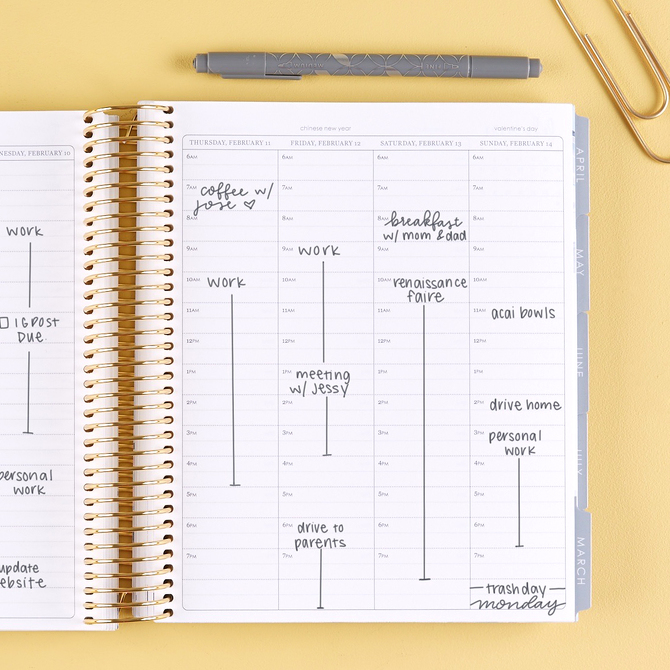 NESDAY, FEBRUARY 10
work
IG POST
DUE
personal
work
update
ebsite
chinese new year
valentine's day
THURSDAY, FEBRUARY 11
6AM
7AM coffee w/
jose ♡
8AM
9AM
10AM work
11AM
12PM
1PM
2PM
3PM
4PM
5PM
6PM
7PM
FRIDAY, FEBRUARY 12
6AM
7AM
8AM
9AM work
10AM
11AM
12PM
1PM meeting
w/ jessy
2PM
3PM
4PM
5PM
6PM drive to
parents
7PM
SATURDAY, FEBRUARY 13
6AM
7AM
8AM breakfast
w/ mom & dad
9AM
10AM renaissance
faire
11AM
12PM
1PM
2PM
3PM
4PM
5PM
6PM
7PM
SUNDAY, FEBRUARY 14
6AM
7AM
8AM
9AM
10AM
11AM acai bowls
12PM
1PM
2PM drive home
3PM personal
work
4PM
5PM
6PM
7PM
trash day
monday
APRIL
MAY
JUNE
JULY
MARCH